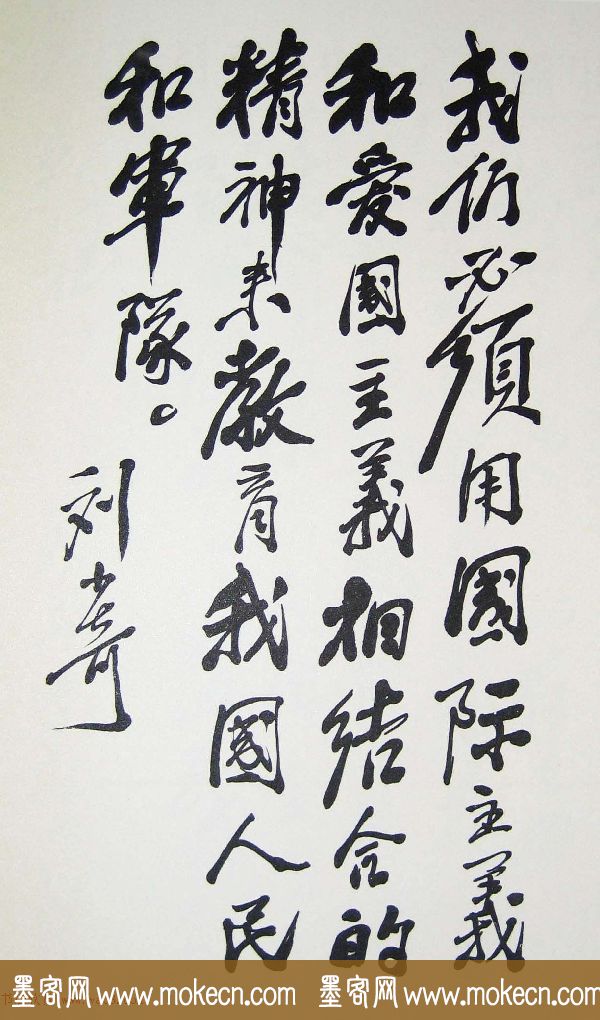 我们必須用國际主義
和爱國主義相结合的
精神来教育我國人民
和軍隊。
刘少奇
墨客网 www.mokecn.com 墨客网 www.mokecn.com